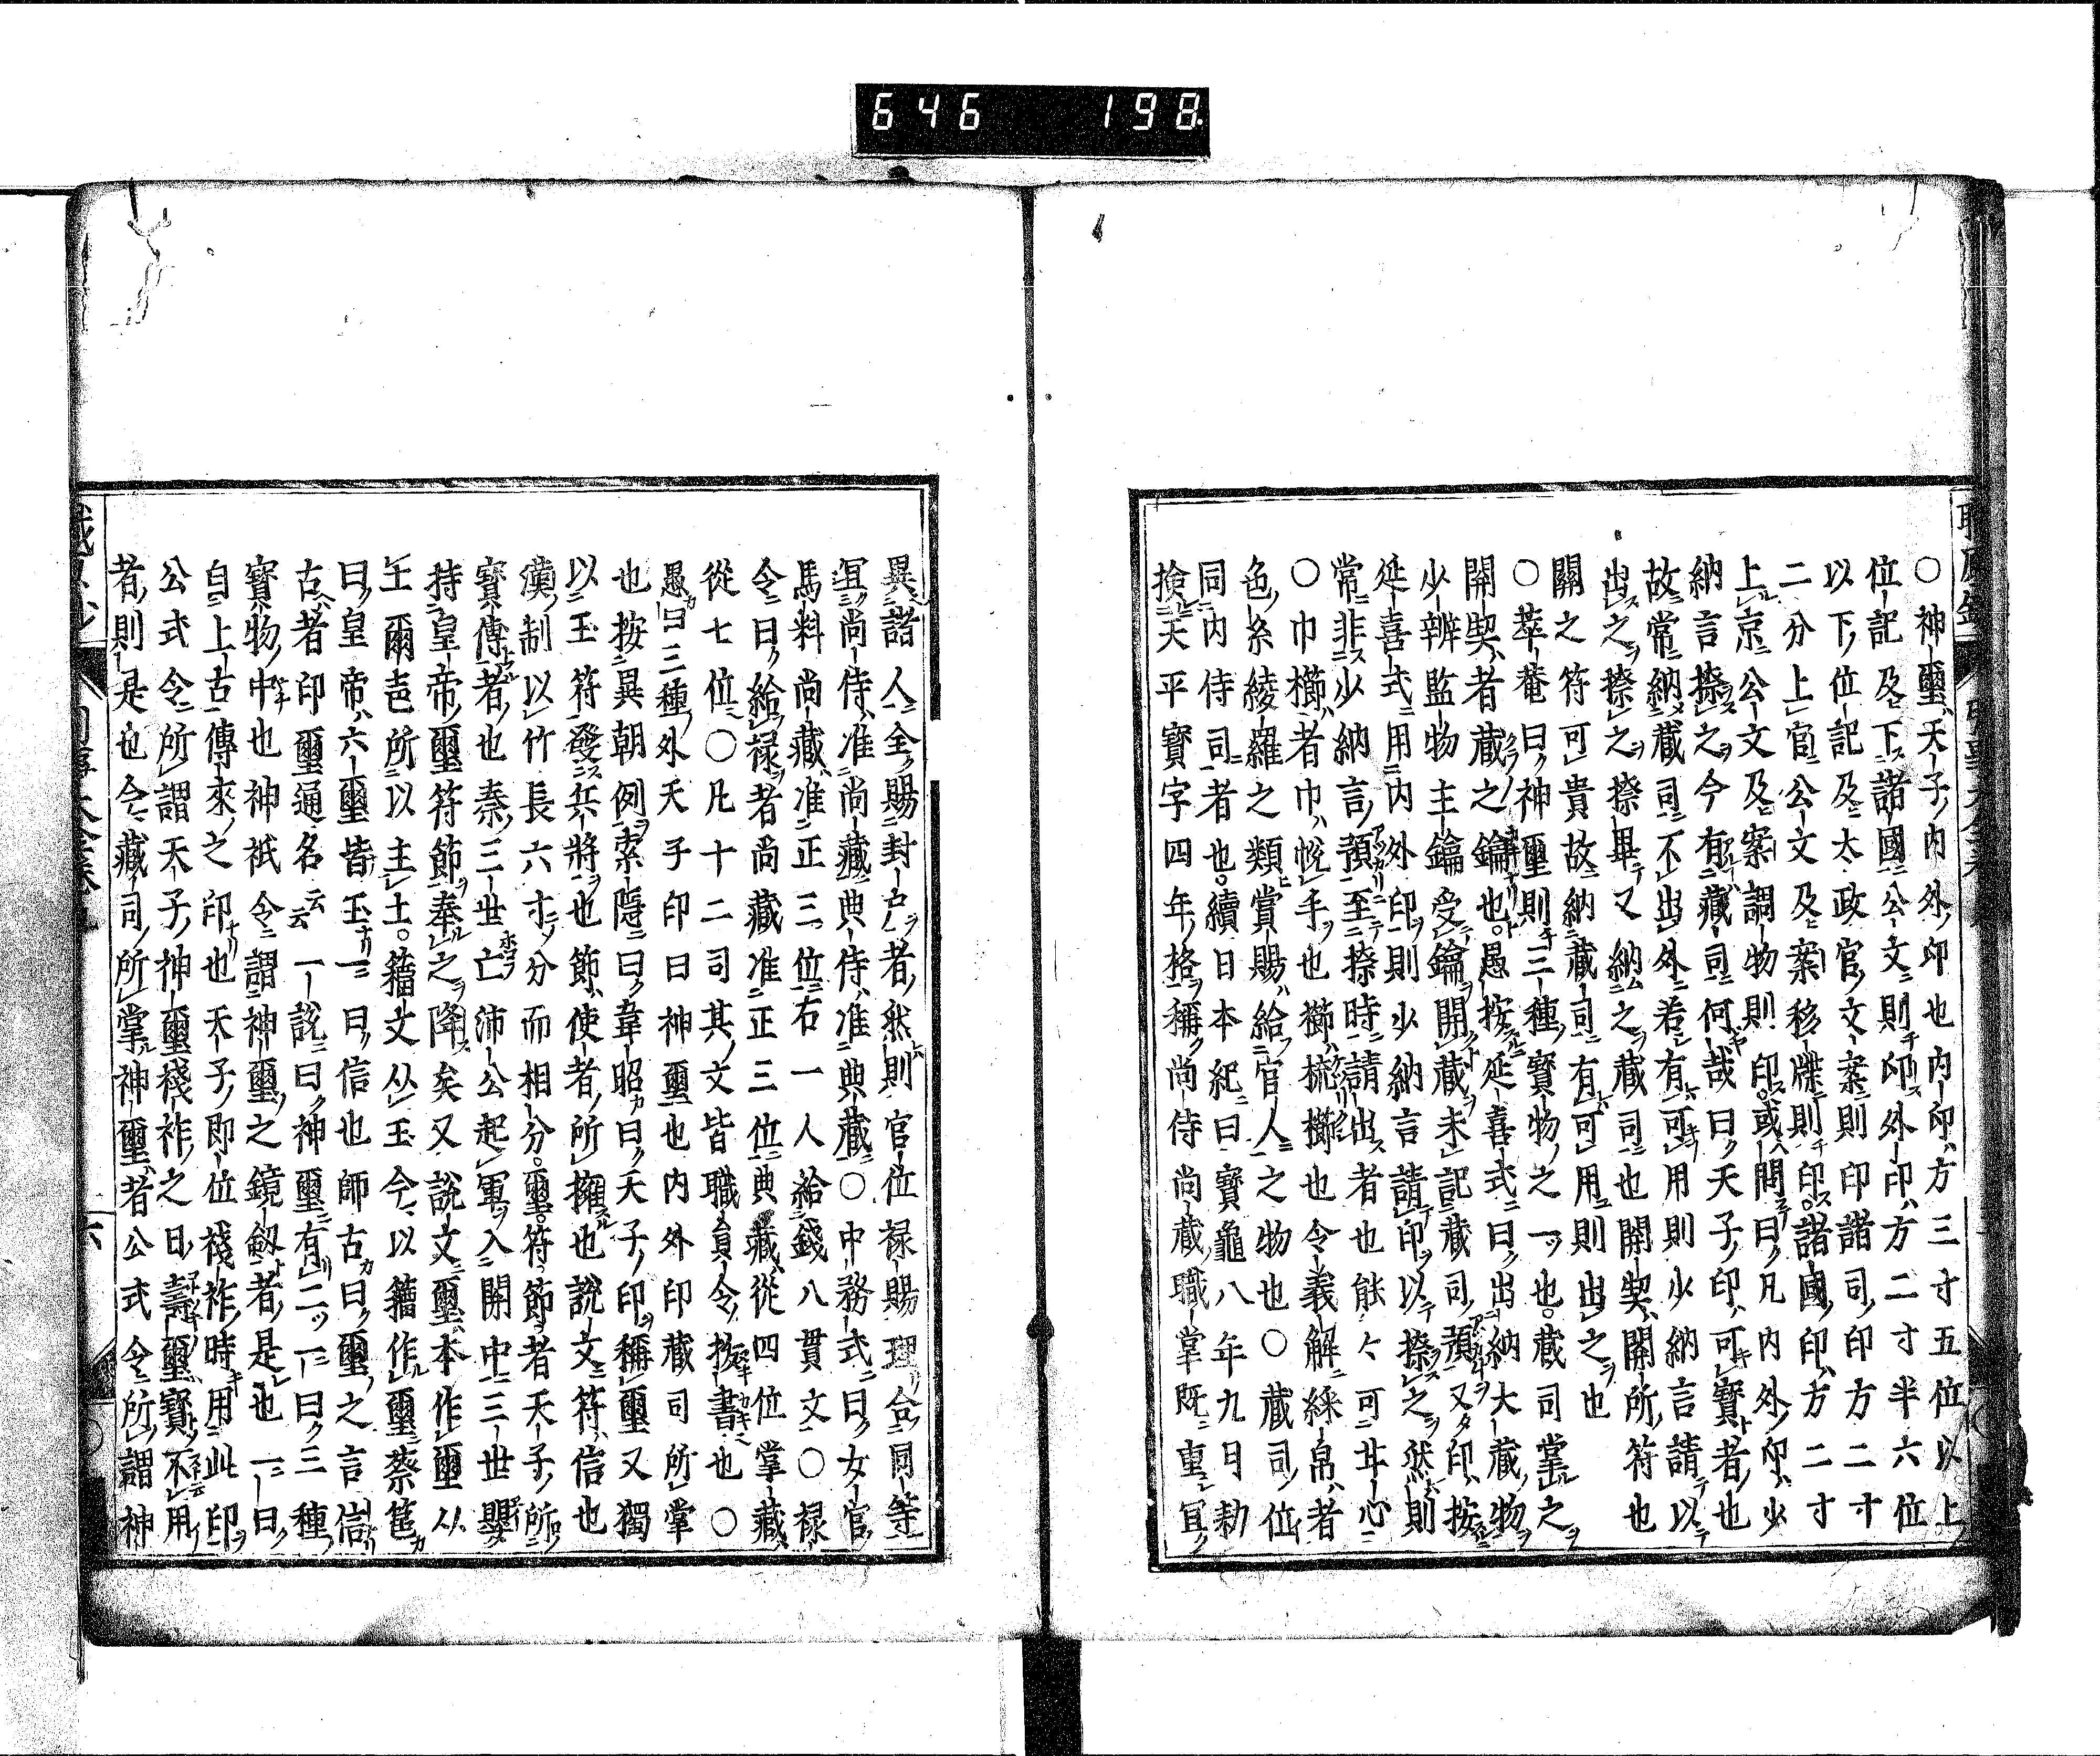 646 198
○神璽天子内外印也内印方三寸五位以上
位記及下諸國公文則印外印方二寸半六位
以下位記及太政官文案則印諸司印方二寸
二分上官公文及案移牒則印諸國印方二寸
上京公文及案調物則印或問曰凡内外印少
納言捺之今有藏司何哉曰天子印可寶者也
故常納藏司不出外若有可用則少納言請以
出之捺之捺畢又納之藏司也開契開所符也
關之符可貴故納藏司有可用則出之也
○萃菴曰神璽則三種寶物之一也藏司掌之
開契者藏之鑰也愚按延喜式曰出納大藏物
少辨監物主鑰受鑰開藏未記藏司預又印按
延喜式用内外印則少納言請印以捺之然則
常非少納言預至捺時請出者也能々可廾心
○巾櫛者巾帨手也櫛梳櫛也令義解綵帛者
色糸綾羅之類賞賜給官人之物也○藏司位
同内侍司者也續日本紀曰寶龜八年九月勅
撿天平寶字四年格稱尚侍尚藏職掌既重冝
異諸人全賜封戸者然則官位祿賜理合同等
冝尚侍准尚藏典侍准典藏○中務式曰女官
馬料尚藏准正三位右一人給錢八貫文○祿
令曰給祿者尚藏准正三位典藏從四位掌藏
從七位○凡十二司其文皆職員令拔書也○
愚曰三種外天子印曰神璽也内外印藏司所掌
也按異朝例索隱曰韋昭曰天子印稱璽又獨
以玉符發兵將也節使者所擁也說文符信也
漢制以竹長六寸分而相分璽符節者天子所
寶傳者也秦三世亡沛公起軍入關中三世嬰
持皇帝璽符節奉之降矣又說文璽本作壐从
土爾㐂所以主土籀文从玉今以籀作璽蔡邕
曰皇帝六璽皆玉一曰信也師古曰璽之言信
古者印璽通名云云一說曰神璽有二一曰三種
寶物中也神祇令謂神璽之鏡劒者是也一曰
自上古傳來之印也天子即位踐祚時用此印
公式令所謂天子神璽踐祚之日壽璽寶不用
者則是也今藏司所掌神璽者公式令所謂神